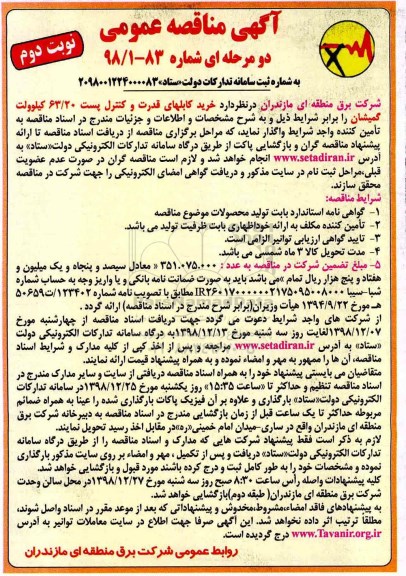 آگهی مناقصه عمومی
دو مرحله ای شماره ۸۳-۹۸/۱
نوبت دوم
به شماره ثبت سامانه تدارکات دولت«ستاد»۲۰۹۸۰۰۱۲۲۴۰۰۰۰۸۳
شرکت برق منطقه ای مازندران درنظردارد خرید کابلهای قدرت و کنترل پست ۶۳/۲۰ کیلوولت
گمیشان را برابر شرایط ذیل و به شرح مشخصات و اطلاعات و جزئیات مندرج در اسناد مناقصه به
تأمین کننده واجد شرایط واگذار نماید، که مراحل برگزاری مناقصه از دریافت اسناد مناقصه تا ارائه
پیشنهاد مناقصه گران و بازگشایی پاکت از طریق درگاه سامانه تدارکات الکترونیکی دولت«ستاد» به
آدرس www.setadiran.ir انجام خواهد شد و لازم است مناقصه گران در صورت عدم عضویت
قبلی،مراحل ثبت نام در سایت مذکور و دریافت گواهی امضای الکترونیکی را جهت شرکت در مناقصه
محقق سازند.
شرایط مناقصه:
۱- گواهی نامه استاندارد بابت تولید محصولات موضوع مناقصه
۲- تأمین کننده مکلف به ارائه خوداظهاری بابت ظرفیت تولید می باشد.
۳- تایید گواهی ارزیابی توانیر الزامی است.
۴- مدت تحویل کالا ۳ ماه شمسی می باشد.
۵- مبلغ تضمین شرکت در مناقصه به عدد : ۳۵۱.۰۷۵.۰۰۰ « معادل سیصد و پنجاه و یک میلیون و
هفتاد و پنج هزار ریال تمام »می باشد باید به صورت ضمانت نامه بانکی و یا واریز وجه به حساب شماره
شبا-سیبا مطابق با تصویب نامه شماره ۱۲۳۴۰۲/ت۵۰۶۵۹
هـ مورخ ۱۳۹۴/۹/۲۲ هیأت وزیران(برابر شرح مندرج در اسناد مناقصه) ارائه گردد .
از شرکت های واجد شرایط دعوت می گردد جهت دریافت اسناد مناقصه از چهارشنبه مورخ
۱۳۹۸/۱۲/۰۷ لغایت روز سه شنبه مورخ ۱۳۹۸/۱۲/۱۳ به درگاه سامانه تدارکات الکترونیکی دولت
«ستاد» به آدرس www.setadiran.ir مراجعه و پس از اخذ کپی از کلیه مدارک و شرایط اسناد
مناقصه، آن ها را ممهور به مهر و امضاء نموده و به همراه پیشنهاد قیمت ارائه نمایند.
متقاضیان می بایستی پیشنهاد خود را به همراه اسناد مناقصه دریافتی از سایت و سایر مدارک مندرج در
اسناد مناقصه تنظیم و حداکثر تا «ساعت ۱۵:۳۵» روز یکشنبه مورخ ۱۳۹۸/۱۲/۲۵در سامانه تدارکات
الکترونیکی دولت«ستاد» بارگذاری و علاوه بر آن فیزیک پاکات بارگذاری شده را عینا به همراه ضمائم
مربوطه حداکثر تا یک ساعت قبل از زمان بازگشایی مندرج در اسناد مناقصه به دبیرخانه شرکت برق
منطقه ای مازندران واقع در ساری-میدان امام خمینی«ره»در مقابل اخذ رسید تحویل نمایند.
لازم به ذکر است فقط پیشنهاد شرکت هایی که مدارک و اسناد مناقصه را از طریق درگاه سامانه
تدارکات الکترونیکی دولت«ستاد» دریافت و پس از تکمیل ، مهر و امضاء بر روی سایت مذکور بارگذاری
نموده و مشخصات خود را به طور کامل ثبت و درج کرده باشند مورد قبول و بازگشایی خواهد شد.
کلیه پیشنهادات واصله رأس ساعت ۸:۳۰ صبح روز سه شنبه مورخ ۱۳۹۸/۱۲/۲۷در محل سالن وحدت
شرکت برق منطقه ای مازندران( طبقه دوم)بازگشایی خواهد شد.
به پیشنهادهای فاقد امضاء،مشروط،مخدوش و پیشنهاداتی که بعد از موعد مقرر در اسناد واصل شوند،
مطلقا ترتیب اثر داده نخواهد شد. این آگهی صرفا جهت اطلاع در سایت معاملات توانیر به آدرس
www.Tavanir.org.ir درج گردیده است.
روابط عمومی شرکت برق منطقه ای مازندران